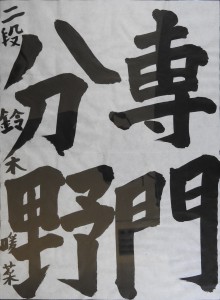 専門
分野
二段 鈴木暖菜